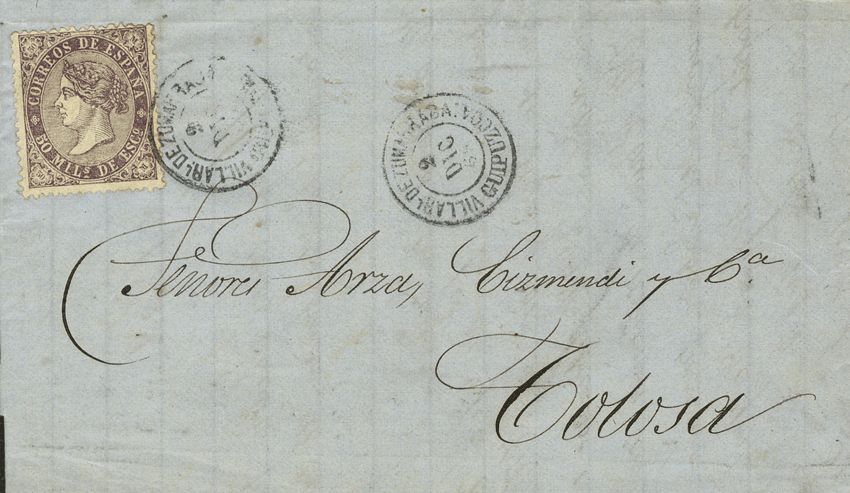 CORREOS DE ESPAÑA
50 MILS DE ESCO
VILLARL DE ZUMARRAGA.
DIC
VILLARL DE ZUMARRAGA. GUIPUZCOA
DIC
Señores Arza, Eizmendi y Cª
Tolosa